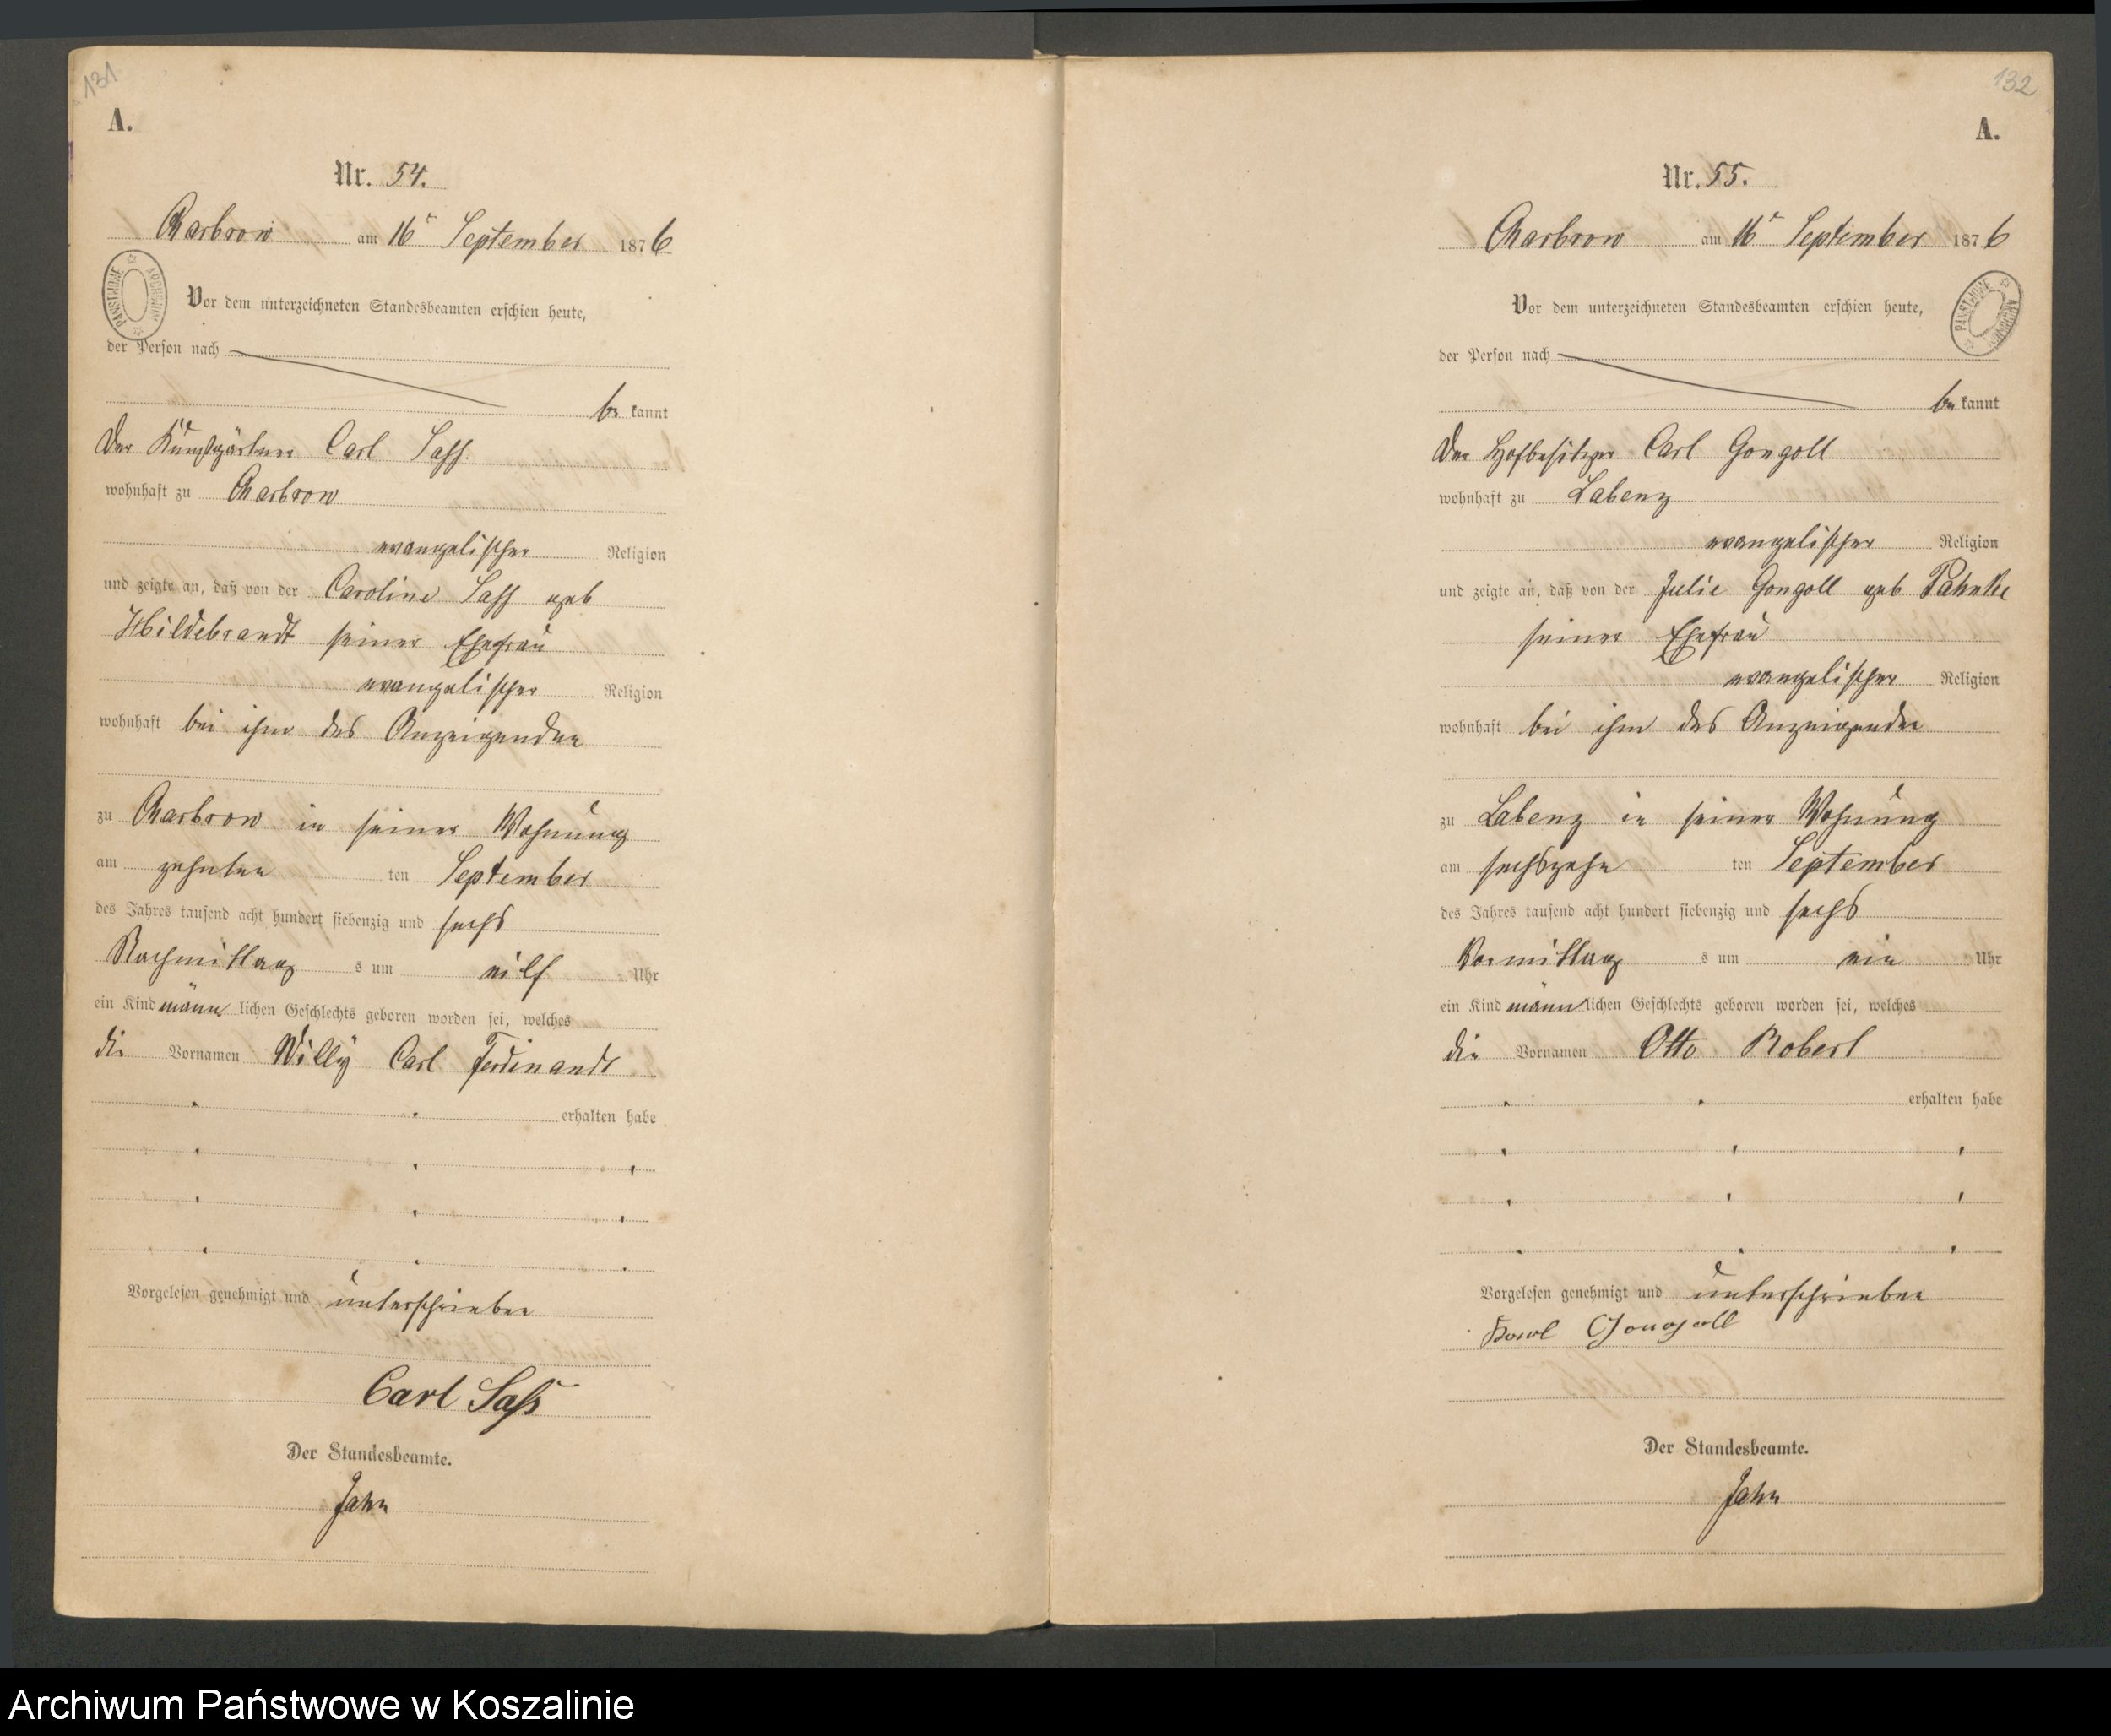 131
A.
Nr. 54.
Charbrow am 16ᵗ September 1876
PAŃSTWOWE ARCHIWUM
Vor dem unterzeichneten Standesbeamten erschien heute,
der Person nach
be kannt
Der Kunstgärtner Carl Saß.
wohnhaft zu Charbrow
evangelischer Religion
und zeigte an, daß von der Caroline Saß geb
Hildebrandt seiner Ehefrau
evangelischer Religion
wohnhaft bei ihm des Anzeigenden
zu Charbrow in seiner Wohnung
am zehnten ten September
des Jahres tausend acht hundert siebenzig und sechs
Nachmittag s um eilf Uhr
ein Kind männ lichen Geschlechts geboren worden sei, welches
die Vornamen Willy Carl Ferdinandt
erhalten habe
Vorgelesen genehmigt und unterschrieben
Carl Saß
Der Standesbeamte.
Jahn
132
A.
Nr. 55.
Charbrow am 16ᵗ September 1876
PAŃSTWOWE ARCHIWUM
Vor dem unterzeichneten Standesbeamten erschien heute,
der Person nach
be kannt
Der Hofbesitzer Carl Gongoll
wohnhaft zu Labenz
evangelischer Religion
und zeigte an, daß von der Julie Gongoll geb Pahnke
seiner Ehefrau
evangelischer Religion
wohnhaft bei ihm des Anzeigenden
zu Labenz in seiner Wohnung
am sechszehn ten September
des Jahres tausend acht hundert siebenzig und sechs
Vormittag s um ein Uhr
ein Kind männ lichen Geschlechts geboren worden sei, welches
die Vornamen Otto Robert
erhalten habe
Vorgelesen genehmigt und unterschrieben
Karl Gongoll
Der Standesbeamte.
Jahn
Archiwum Państwowe w Koszalinie